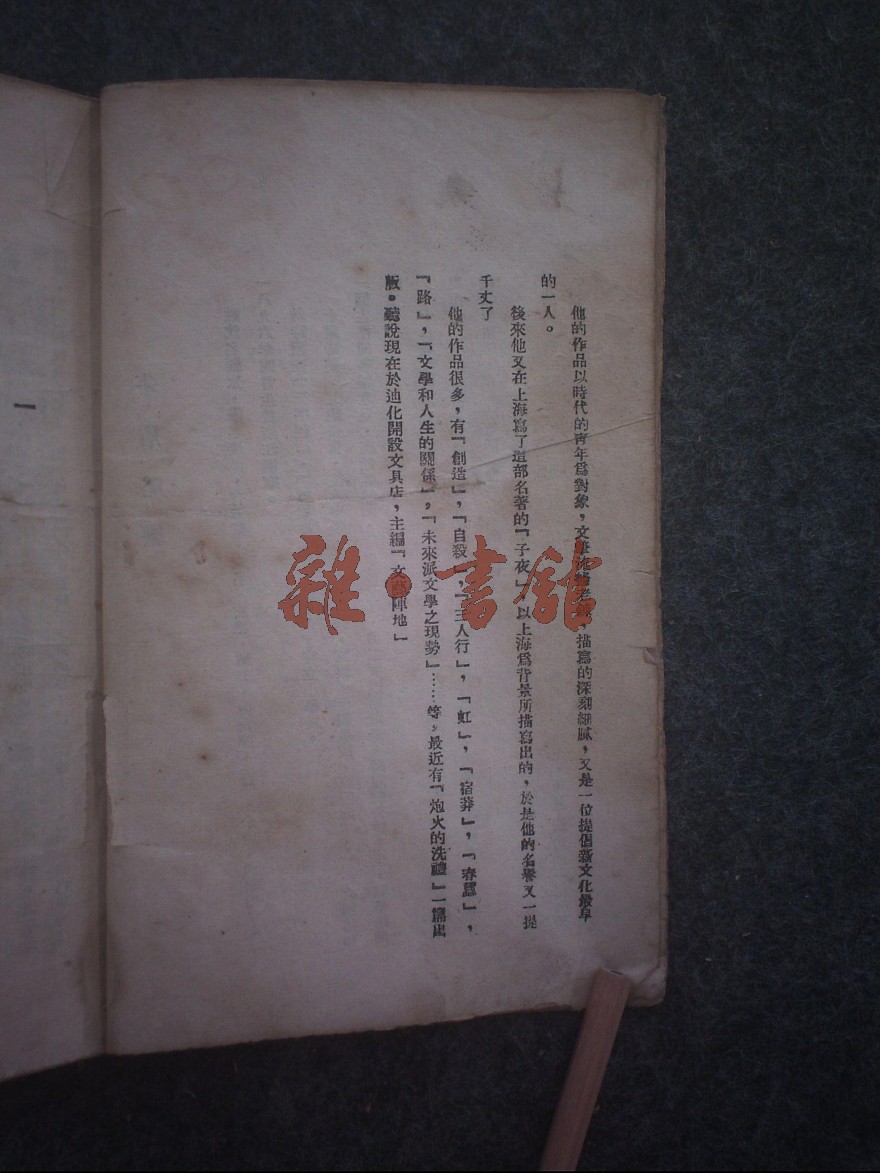 他的作品以時代的靑年爲對象，文筆流，描寫的深刻細膩，又是一位提倡新文化最早
的一人。
後來他又在上海寫了這部名著的「子夜」，以上海爲背景所描寫出的，於是他的名譽又一提
千丈了
他的作品很多，有「創造」，「自殺」，「三人行」，「虹」，「宿莽」，「春蠶」，
「路」，「文學和人生的關係」，「未來派文學之現勢」……等，最近有「炮火的洗禮」一書出
版。聽說現在於迪化開設文具店，主編「文藝陣地」
一
雜·書館